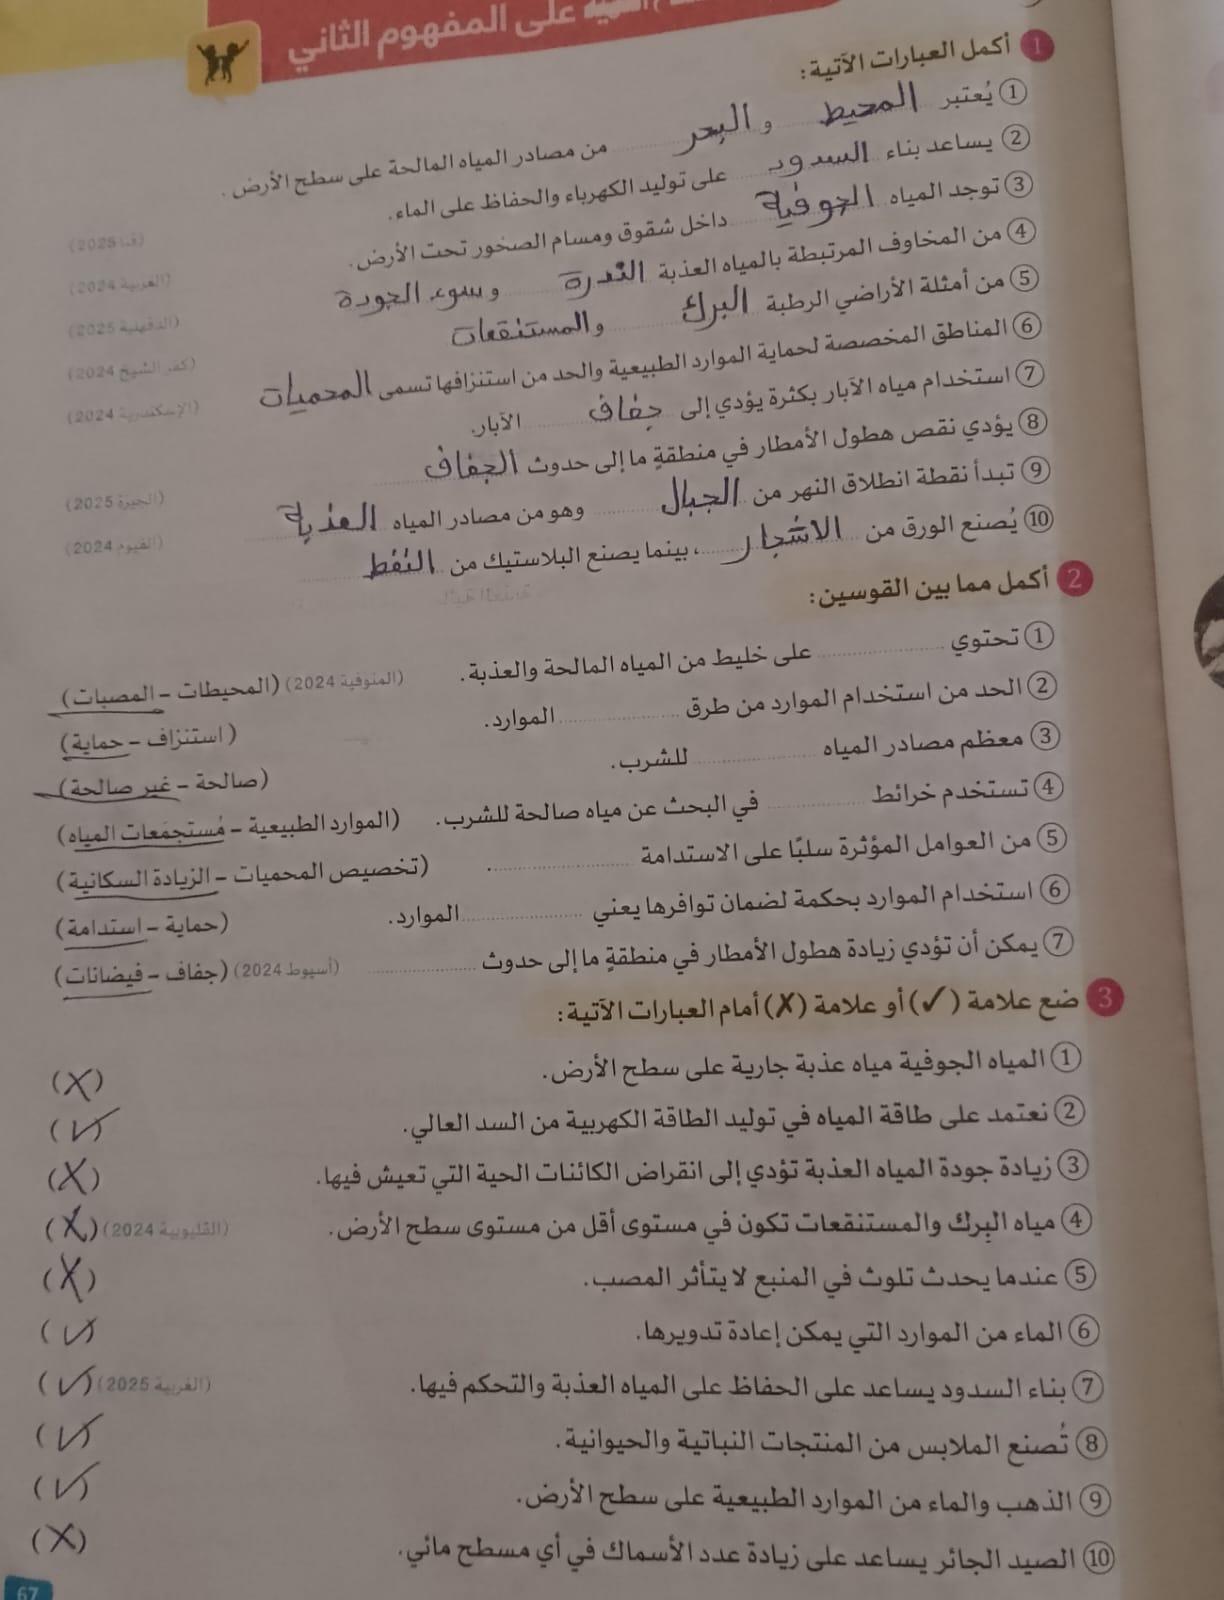 على المفهوم الثاني
1 أكمل العبارات الآتية:
① يُعتبر المحيط و البحر من مصادر المياه المالحة على سطح الأرض.
② يساعد بناء السدود على توليد الكهرباء والحفاظ على الماء. (قنا 2025)
③ توجد المياه الجوفية داخل شقوق ومسام الصخور تحت الأرض. (الغربية 2024)
④ من المخاوف المرتبطة بالمياه العذبة الندرة و سوء الجودة (الدقهلية 2025)
⑤ من أمثلة الأراضي الرطبة البرك و المستنقعات (كفر الشيخ 2024)
⑥ المناطق المخصصة لحماية الموارد الطبيعية والحد من استنزافها تسمى المحميات (الإسكندرية 2024)
⑦ استخدام مياه الآبار بكثرة يؤدي إلى جفاف الآبار.
⑧ يؤدي نقص هطول الأمطار في منطقةٍ ما إلى حدوث الجفاف (الجيزة 2025)
⑨ تبدأ نقطة انطلاق النهر من الجبال وهو من مصادر المياه العذبة (الفيوم 2024)
⑩ يُصنع الورق من الاشجار ، بينما يصنع البلاستيك من النفط
2 أكمل مما بين القوسين:
① تحتوي على خليط من المياه المالحة والعذبة. (المنوفية 2024) (المحيطات - المصبات)
② الحد من استخدام الموارد من طرق الموارد. (استنزاف - حماية)
③ معظم مصادر المياه للشرب. (صالحة - غير صالحة)
④ تستخدم خرائط في البحث عن مياه صالحة للشرب. (الموارد الطبيعية - مُستجمَعات المياه)
⑤ من العوامل المؤثرة سلبًا على الاستدامة . (تخصيص المحميات - الزيادة السكانية)
⑥ استخدام الموارد بحكمة لضمان توافرها يعني الموارد. (حماية - استدامة)
⑦ يمكن أن تؤدي زيادة هطول الأمطار في منطقةٍ ما إلى حدوث (أسيوط 2024) (جفاف - فيضانات)
3 ضع علامة (✓) أو علامة (✗) أمام العبارات الآتية:
① المياه الجوفية مياه عذبة جارية على سطح الأرض. (✗)
② نعتمد على طاقة المياه في توليد الطاقة الكهربية من السد العالي. (✓)
③ زيادة جودة المياه العذبة تؤدي إلى انقراض الكائنات الحية التي تعيش فيها. (✗)
④ مياه البِرك والمستنقعات تكون في مستوى أقل من مستوى سطح الأرض. (القليوبية 2024) (✗)
⑤ عندما يحدث تلوث في المنبع لا يتأثر المصب. (✗)
⑥ الماء من الموارد التي يمكن إعادة تدويرها. (✓)
⑦ بناء السدود يساعد على الحفاظ على المياه العذبة والتحكم فيها. (الغربية 2025) (✓)
⑧ تُصنع الملابس من المنتجات النباتية والحيوانية. (✓)
⑨ الذهب والماء من الموارد الطبيعية على سطح الأرض. (✓)
⑩ الصيد الجائر يساعد على زيادة عدد الأسماك في أي مسطح مائي. (✗)
67